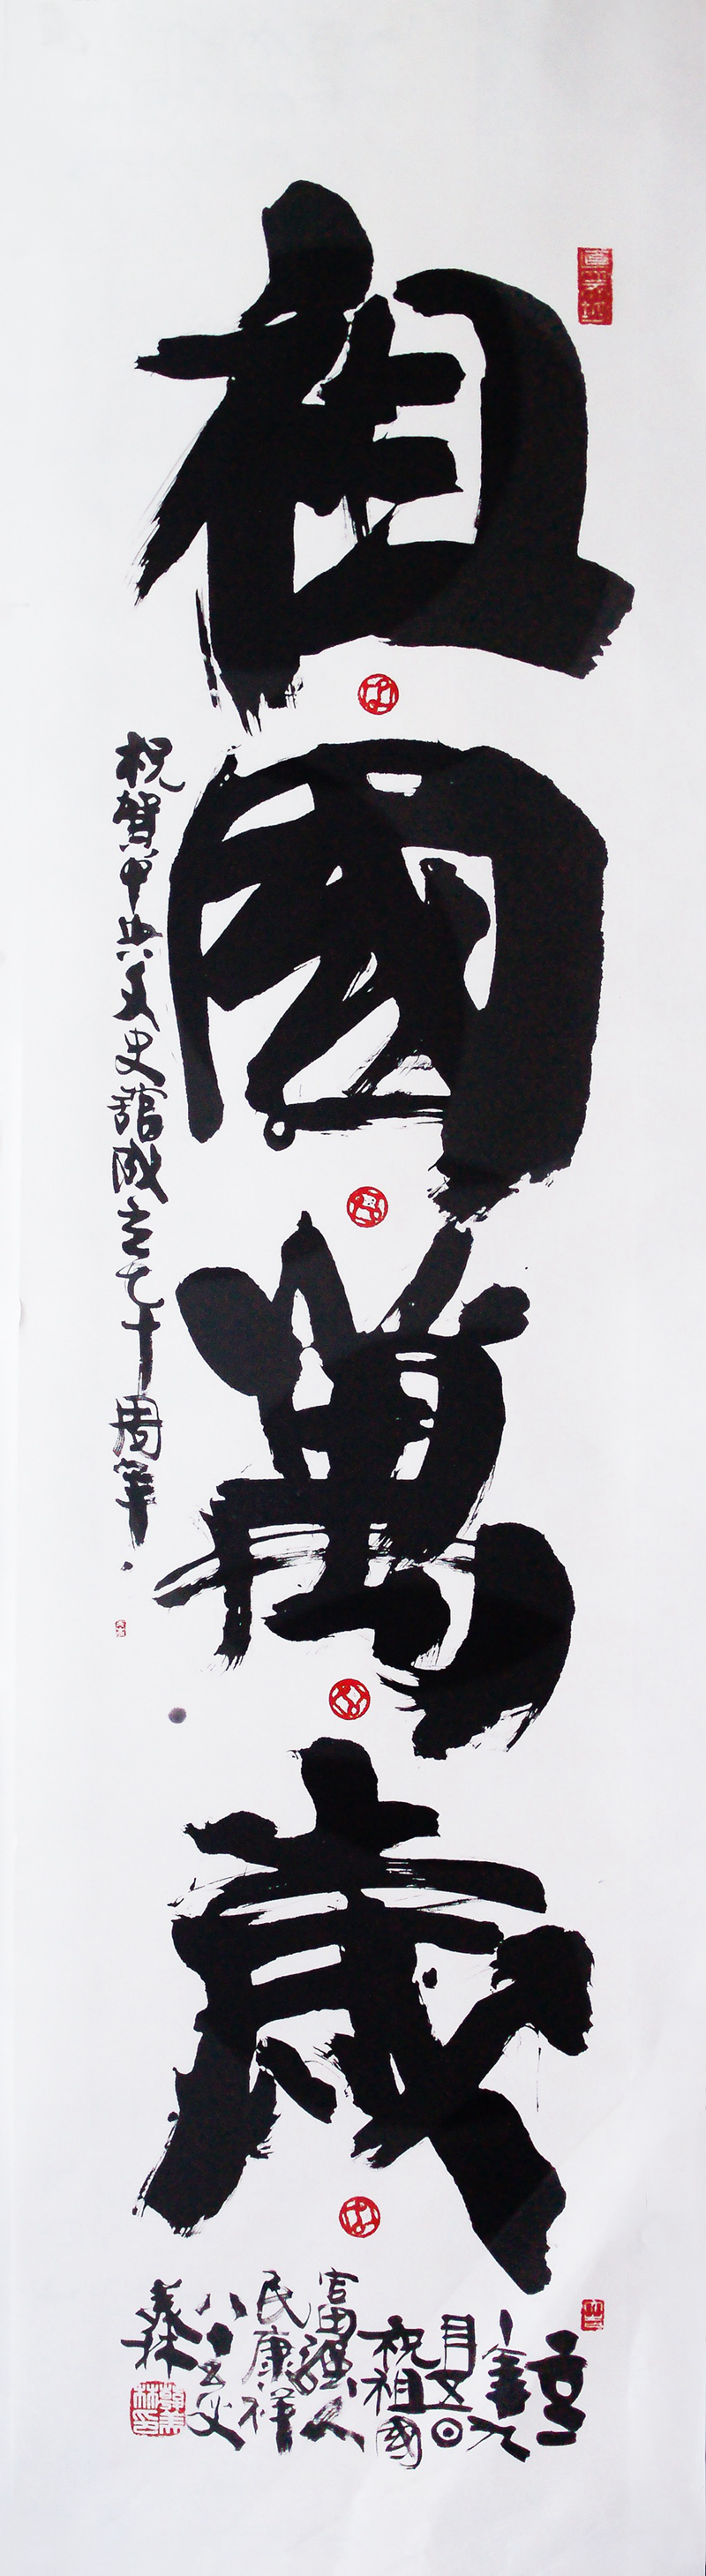 祖國萬歲
祝賀中央文史館成立七十周年
月五日
祝祖國
富强人
民康祥
八十五叟
義林